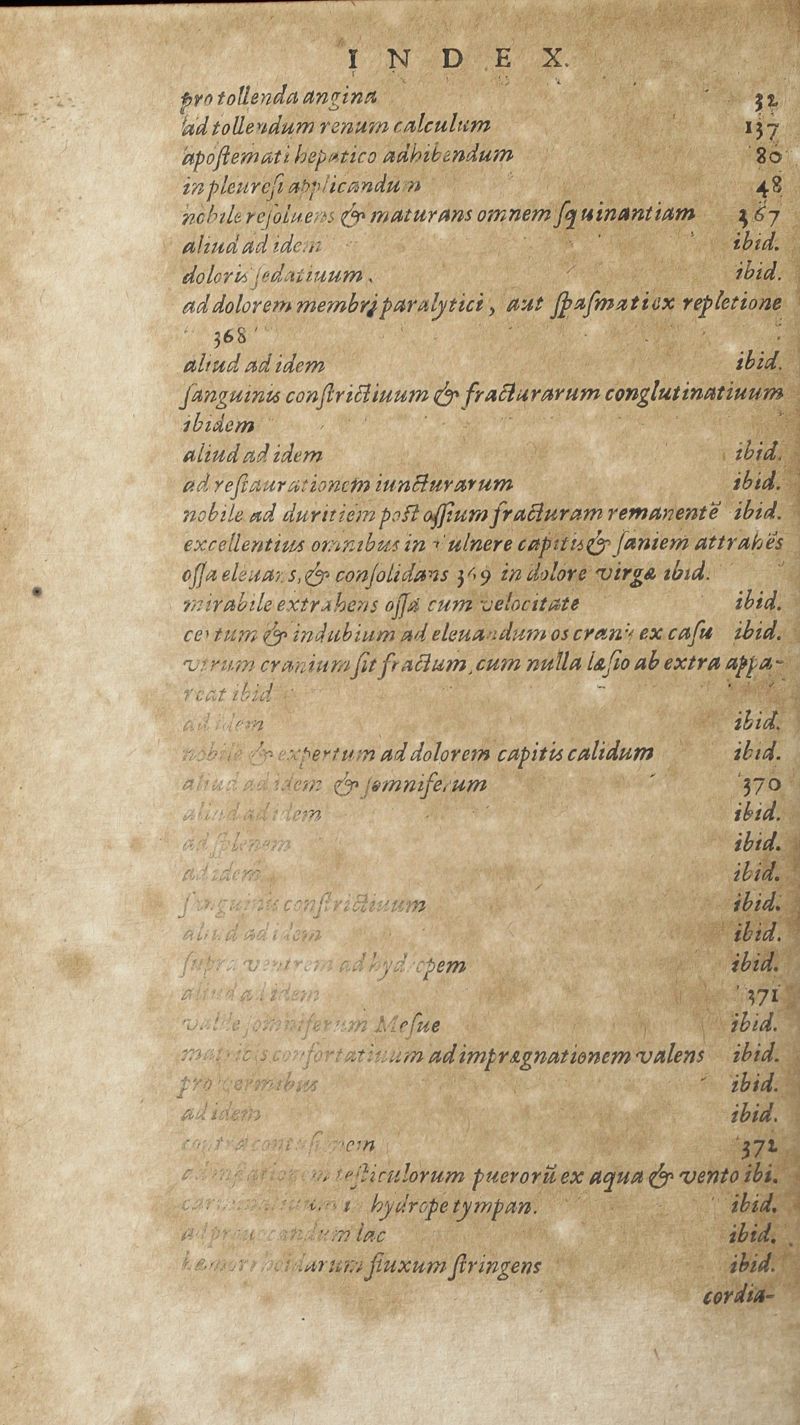 INDEX.
pro tollenda angina 32
ad tollendum renum calculum 137
apoſtemati hepatico adhibendum 80
in pleureſi applicandum 48
nobile reſoluens & maturans omnem ſquinantiam 367
aliud ad idem ibid.
doloris ſedatiuum. ibid.
ad dolorem membri paralytici, aut ſpaſmati ex repletione
368
aliud ad idem ibid.
ſanguinis conſtrictiuum & fracturarum conglutinatiuum
ibidem
aliud ad idem ibid.
ad reſtaurationem iuncturarum ibid.
nobile ad duritiem poſt oſſium fracturam remanentē ibid.
excellentius omnibus in vulnere capitis & ſaniem attrahēs
oſſa eleuans, & conſolidans 369 in dolore virgæ ibid.
mirabile extrahens oſſa cum velocitate ibid.
certum & indubium ad eleuandum os cranij ex caſu ibid.
vtrum cranium ſit fractum, cum nulla læſio ab extra appa-
reat ibid
ad idem ibid.
nobile & expertum ad dolorem capitis calidum ibid.
aliud ad idem & ſomniferum 370
aliud ad idem ibid.
ad ſplenem ibid.
ad idem ibid.
ſanguinis conſtrictiuum ibid.
aliud ad idem ibid.
ſupra ventrem ad hydropem ibid.
aliud ad idem 371
valde ſomniferum Meſue ibid.
matricis confortatiuum ad imprægnationem valens ibid.
pro vermibus ibid.
ad idem ibid.
372
teſticulorum puerorū ex aqua & vento ibi.
hydrope tympan. ibid.
lac ibid.
hemorrhoidarum fluxum ſtringens ibid.
cordia-